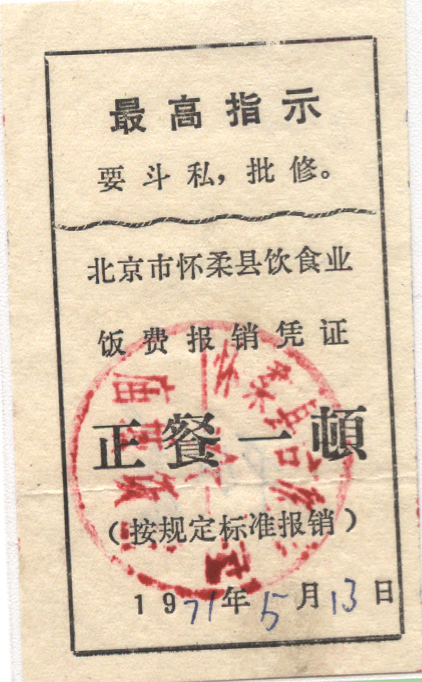 最高指示
要斗私，批修。
北京市怀柔县饮食业
饭费报销凭证
正餐一顿
（按规定标准报销）
1971年5月13日